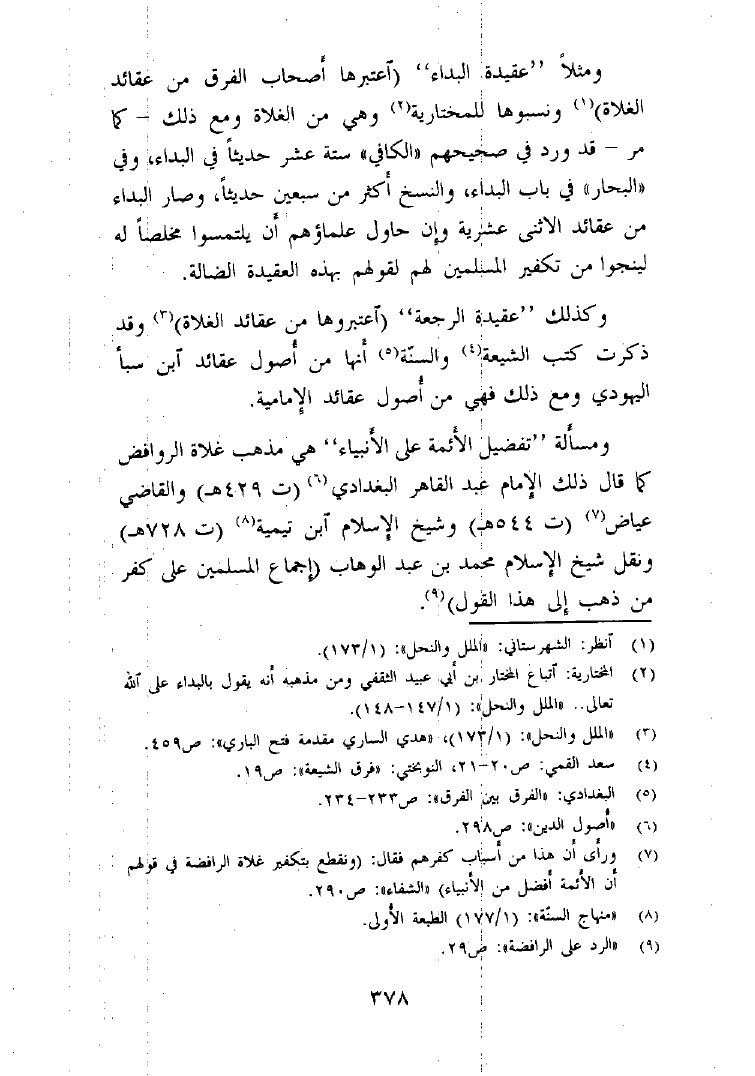 ومثلاً ’’عقيدة البداء‘‘ (آعتبرها أصحاب الفرق من عقائد
الغلاة)(١) ونسبوها للمختارية(٢) وهي من الغلاة ومع ذلك – كما
مر – قد ورد في صحيحهم «الكافي» ستة عشر حديثاً في البداء، وفي
«البحار» في باب البداء، والنسخ أكثر من سبعين حديثاً، وصار البداء
من عقائد الاثنى عشرية وإن حاول علماؤهم أن يلتمسوا مخلصاً له
لينجوا من تكفير المسلمين لهم لقولهم بهذه العقيدة الضالة.
وكذلك ’’عقيدة الرجعة‘‘ (آعتبروها من عقائد الغلاة)(٣) وقد
ذكرت كتب الشيعة(٤) والسنّة(٥) أنها من أصول عقائد آبن سبأ
اليهودي ومع ذلك فهي من أصول عقائد الإمامية.
ومسألة ’’تفضيل الأئمة على الأنبياء‘‘ هي مذهب غلاة الروافض
كما قال ذلك الإمام عبد القاهر البغدادي(٦) (ت ٤٢٩هـ) والقاضي
عياض(٧) (ت ٥٤٤هـ) وشيخ الإسلام آبن تيمية(٨) (ت ٧٢٨هـ)
ونقل شيخ الإسلام محمد بن عبد الوهاب (إجماع المسلمين على كفر
من ذهب إلى هذا القول)(٩).
(١) آنظر: الشهرستاني: «الملل والنحل»: (١٧٣/١).
(٢) المختارية: أتباع المختار بن أبي عبيد الثقفي ومن مذهبه أنه يقول بالبداء على الله
تعالى.. «الملل والنحل»: (١٤٧/١–١٤٨).
(٣) «الملل والنحل»: (١٧٣/١)، «هدي الساري مقدمة فتح الباري»: ص٤٥٩.
(٤) سعد القمي: ص٢٠–٢١، النوبختي: «فرق الشيعة»: ص١٩.
(٥) البغدادي: «الفرق بين الفرق»: ص٢٣٣–٢٣٤.
(٦) «أصول الدين»: ص٢٩٨.
(٧) ورأى أن هذا من أسباب كفرهم فقال: (ونقطع بتكفير غلاة الرافضة في قولهم
أن الأئمة أفضل من الأنبياء) «الشفاء»: ص٢٩٠.
(٨) «منهاج السنّة»: (١٧٧/١) الطبعة الأولى.
(٩) «الرد على الرافضة»: ص٢٩.
٣٧٨